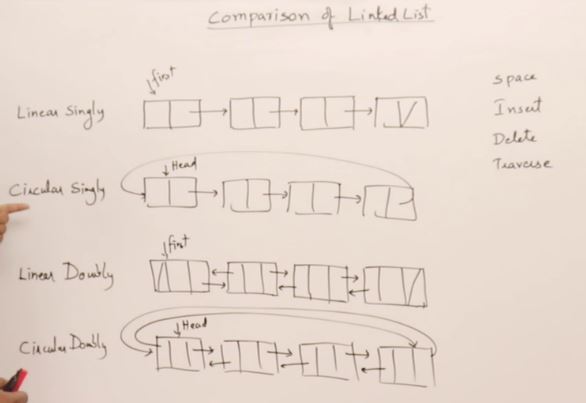 Comparison of Linked List
first
Linear Singly
Head
Circular Singly
first
Linear Doubly
Head
Circular Doubly
space
Insert
Delete
Traverse